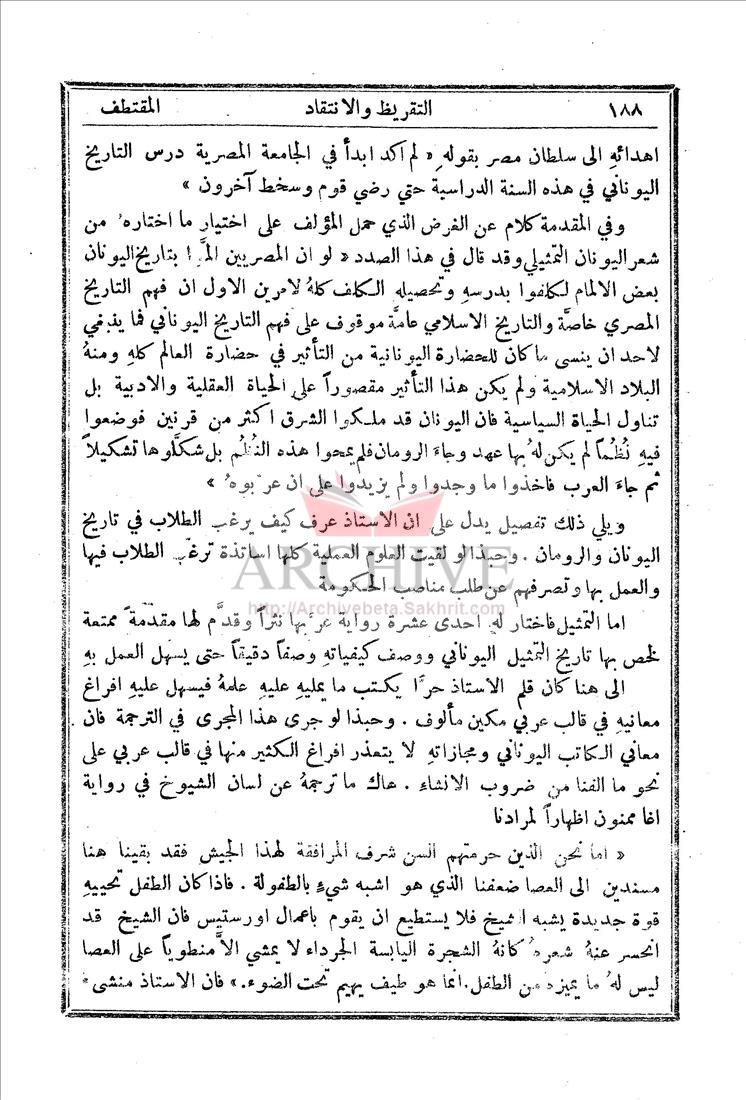 ١٨٨ التقريظ والانتقاد المقتطف
اهدائهِ الى سلطان مصر بقولهِ « لم اكد ابدأ في الجامعة المصرية درس التاريخ
اليوناني في هذه السنة الدراسية حتي رضي قوم وسخط آخرون »
وفي المقدمة كلام عن الغرض الذي حمل المؤلف على اختيار ما اختارهُ من
شعر اليونان التمثيلي وقد قال في هذا الصدد « لو ان المصريين المَّوا بتاريخ اليونان
بعض الالمام لكلفوا بدرسهِ وتحصيله الكلف كلهُ لامرين الاول ان فهم التاريخ
المصري خاصَّة والتاريخ الاسلامي عامَّة موقوف على فهم التاريخ اليوناني فما ينبغي
لاحد ان ينسى ما كان للحضارة اليونانية من التأثير في حضارة العالم كلهِ ومنهُ
البلاد الاسلامية ولم يكن هذا التأثير مقصوراً على الحياة العقلية والادبية بل
تناول الحياة السياسية فان اليونان قد ملكوا الشرق اكثر من قرنين فوضعوا
فيهِ نُظُماً لم يكن لهُ بها عهد وجاءَ الرومان فلم يمحوا هذه النُظُم بل شكَّلوها تشكيلاً
ثم جاءَ العرب فاخذوا ما وجدوا ولم يزيدوا على ان عرَّبوهُ »
ويلي ذلك تفصيل يدل على ان الاستاذ عرف كيف يرغب الطلاب في تاريخ
اليونان والرومان . وحبذا لو لقيت العلوم العملية كلها اساتذة ترغب الطلاب فيها
ARCHIVE
والعمل بها وتصرفهم عن طلب مناصب الحكومة
http://Archivebeta.Sakhrit.com
اما التمثيل فاختار له احدى عشرة رواية عرَّبها نثراً وقدَّم لها مقدمةً ممتعة
لخص بها تاريخ التمثيل اليوناني ووصف كيفياتهِ وصفاً دقيقاً حتى يسهل العمل بهِ
الى هنا كان قلم الاستاذ حرًّا يكتب ما يمليهِ عليهِ علمهُ فيسهل عليهِ افراغ
معانيهِ في قالب عربي مكين مألوف . وحبذا لو جرى هذا المجرى في الترجمة فان
معاني الكاتب اليوناني ومجازاتهِ لا يتعذر افراغ الكثير منها في قالب عربي على
نحو ما الفنا من ضروب الانشاء . هاك ما ترجمهُ عن لسان الشيوخ في رواية
اغا ممنون اظهاراً لمرادنا
« اما نحن الذين حرمتهم السن شرف المرافقة لهذا الجيش فقد بقينا هنا
مسندين الى العصا ضعفنا الذي هو اشبه شيءٍ بالطفولة . فاذا كان الطفل تحييهِ
قوة جديدة يشبه الشيخ فلا يستطيع ان يقوم باعمال اورستيس فان الشيخ قد
انحسر عنهُ شعرهُ كانهُ الشجرة اليابسة الجرداء لا يمشي الاَّ منطوياً على العصا
ليس لهُ ما يميزه من الطفل . انما هو طيف يهيم تحت الضوء . » فان الاستاذ منشىء